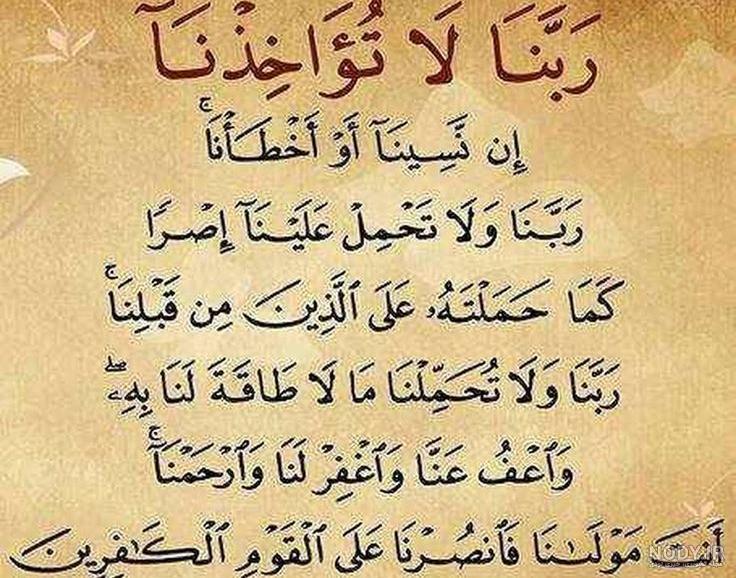 رَبَّنَا لَا تُؤَاخِذْنَآ
إِن نَّسِينَآ أَوْ أَخْطَأْنَاۚ
رَبَّنَا وَلَا تَحْمِلْ عَلَيْنَآ إِصْرًا
كَمَا حَمَلْتَهُۥ عَلَى ٱلَّذِينَ مِن قَبْلِنَاۚ
رَبَّنَا وَلَا تُحَمِّلْنَا مَا لَا طَاقَةَ لَنَا بِهِۦۖ
وَٱعْفُ عَنَّا وَٱغْفِرْ لَنَا وَٱرْحَمْنَآۚ
أَنتَ مَوْلَىٰنَا فَٱنصُرْنَا عَلَى ٱلْقَوْمِ ٱلْكَـٰفِرِينَ
NODY.IR